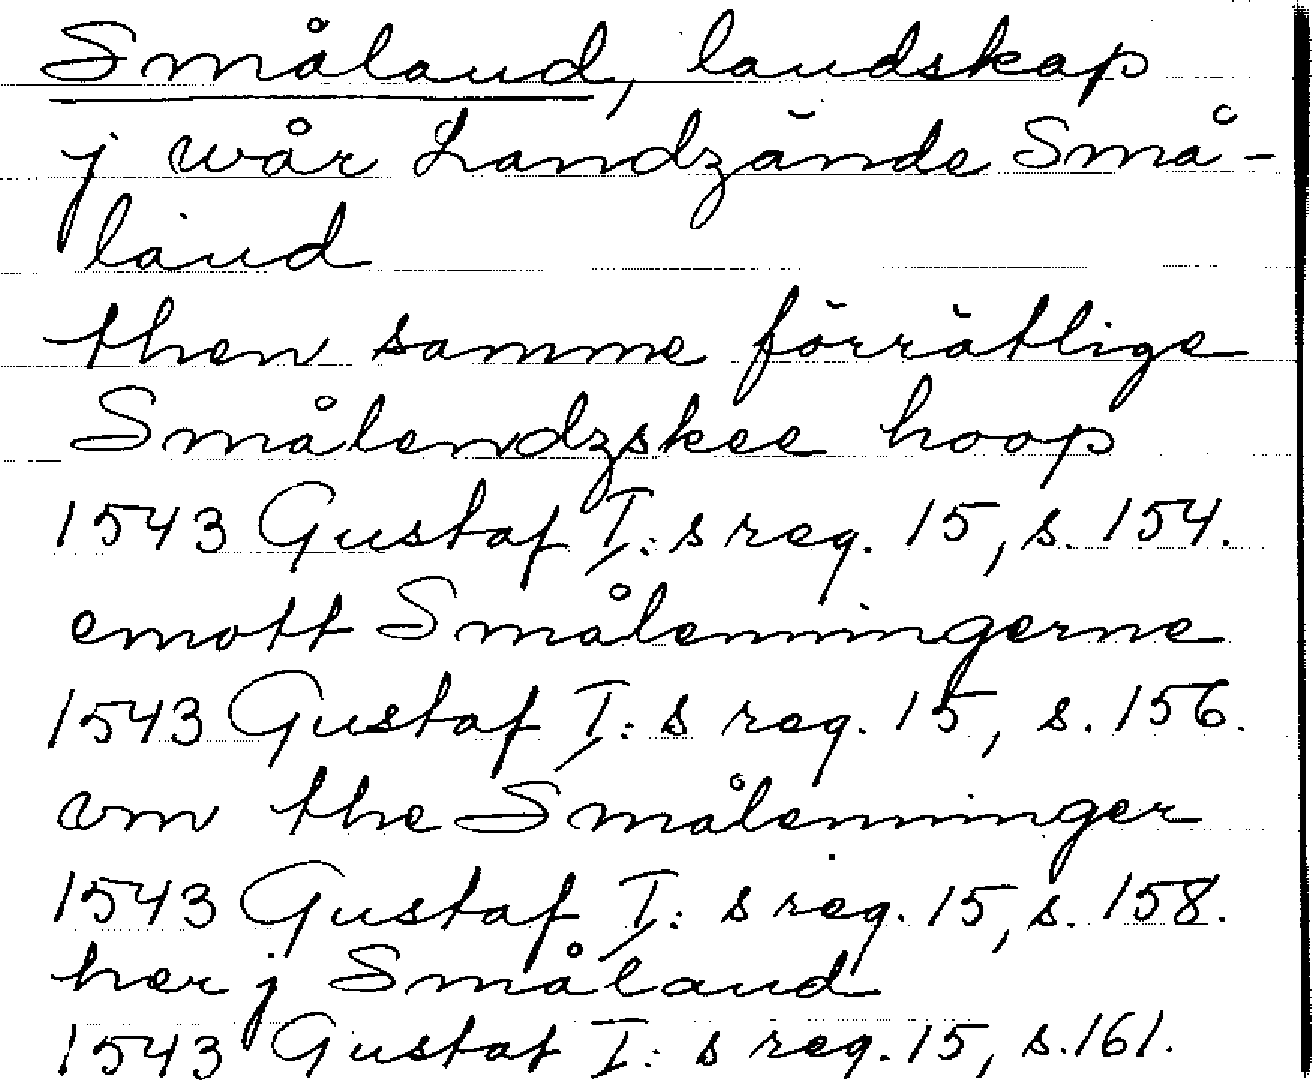 Småland, landskap
j wår Landzände Små-
land
then samme förrätlige
Smålendzskee hoop
1543 Gustaf I:s reg. 15, s. 154.
emott Smålenningerne
1543 Gustaf I:s reg. 15, s. 156.
om the Smålenninger
1543 Gustaf I:s reg. 15, s. 158.
her j Småland
1543 Gustaf I:s reg. 15, s. 161.